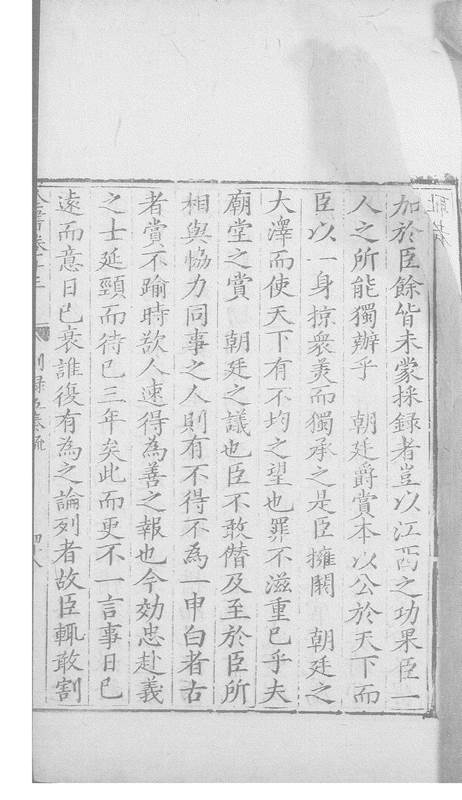 加於臣餘皆未蒙採録者豈以江西之功果臣一
人之所能獨辦乎　朝廷爵賞本以公於天下而
臣以一身掠衆美而獨承之是臣擁閼　朝廷之
大澤而使天下有不均之望也罪不滋重已乎夫
廟堂之賞　朝廷之議也臣不敢僣及至於臣所
相與恊力同事之人則有不得不為一申白者古
者賞不踰時欲人速得為善之報也今効忠赴義
之士延頸而待已三年矣此而更不一言事日已
遠而意日已衰誰復有為之論列者故臣輒敢割
全書卷十三
別録五奏疏